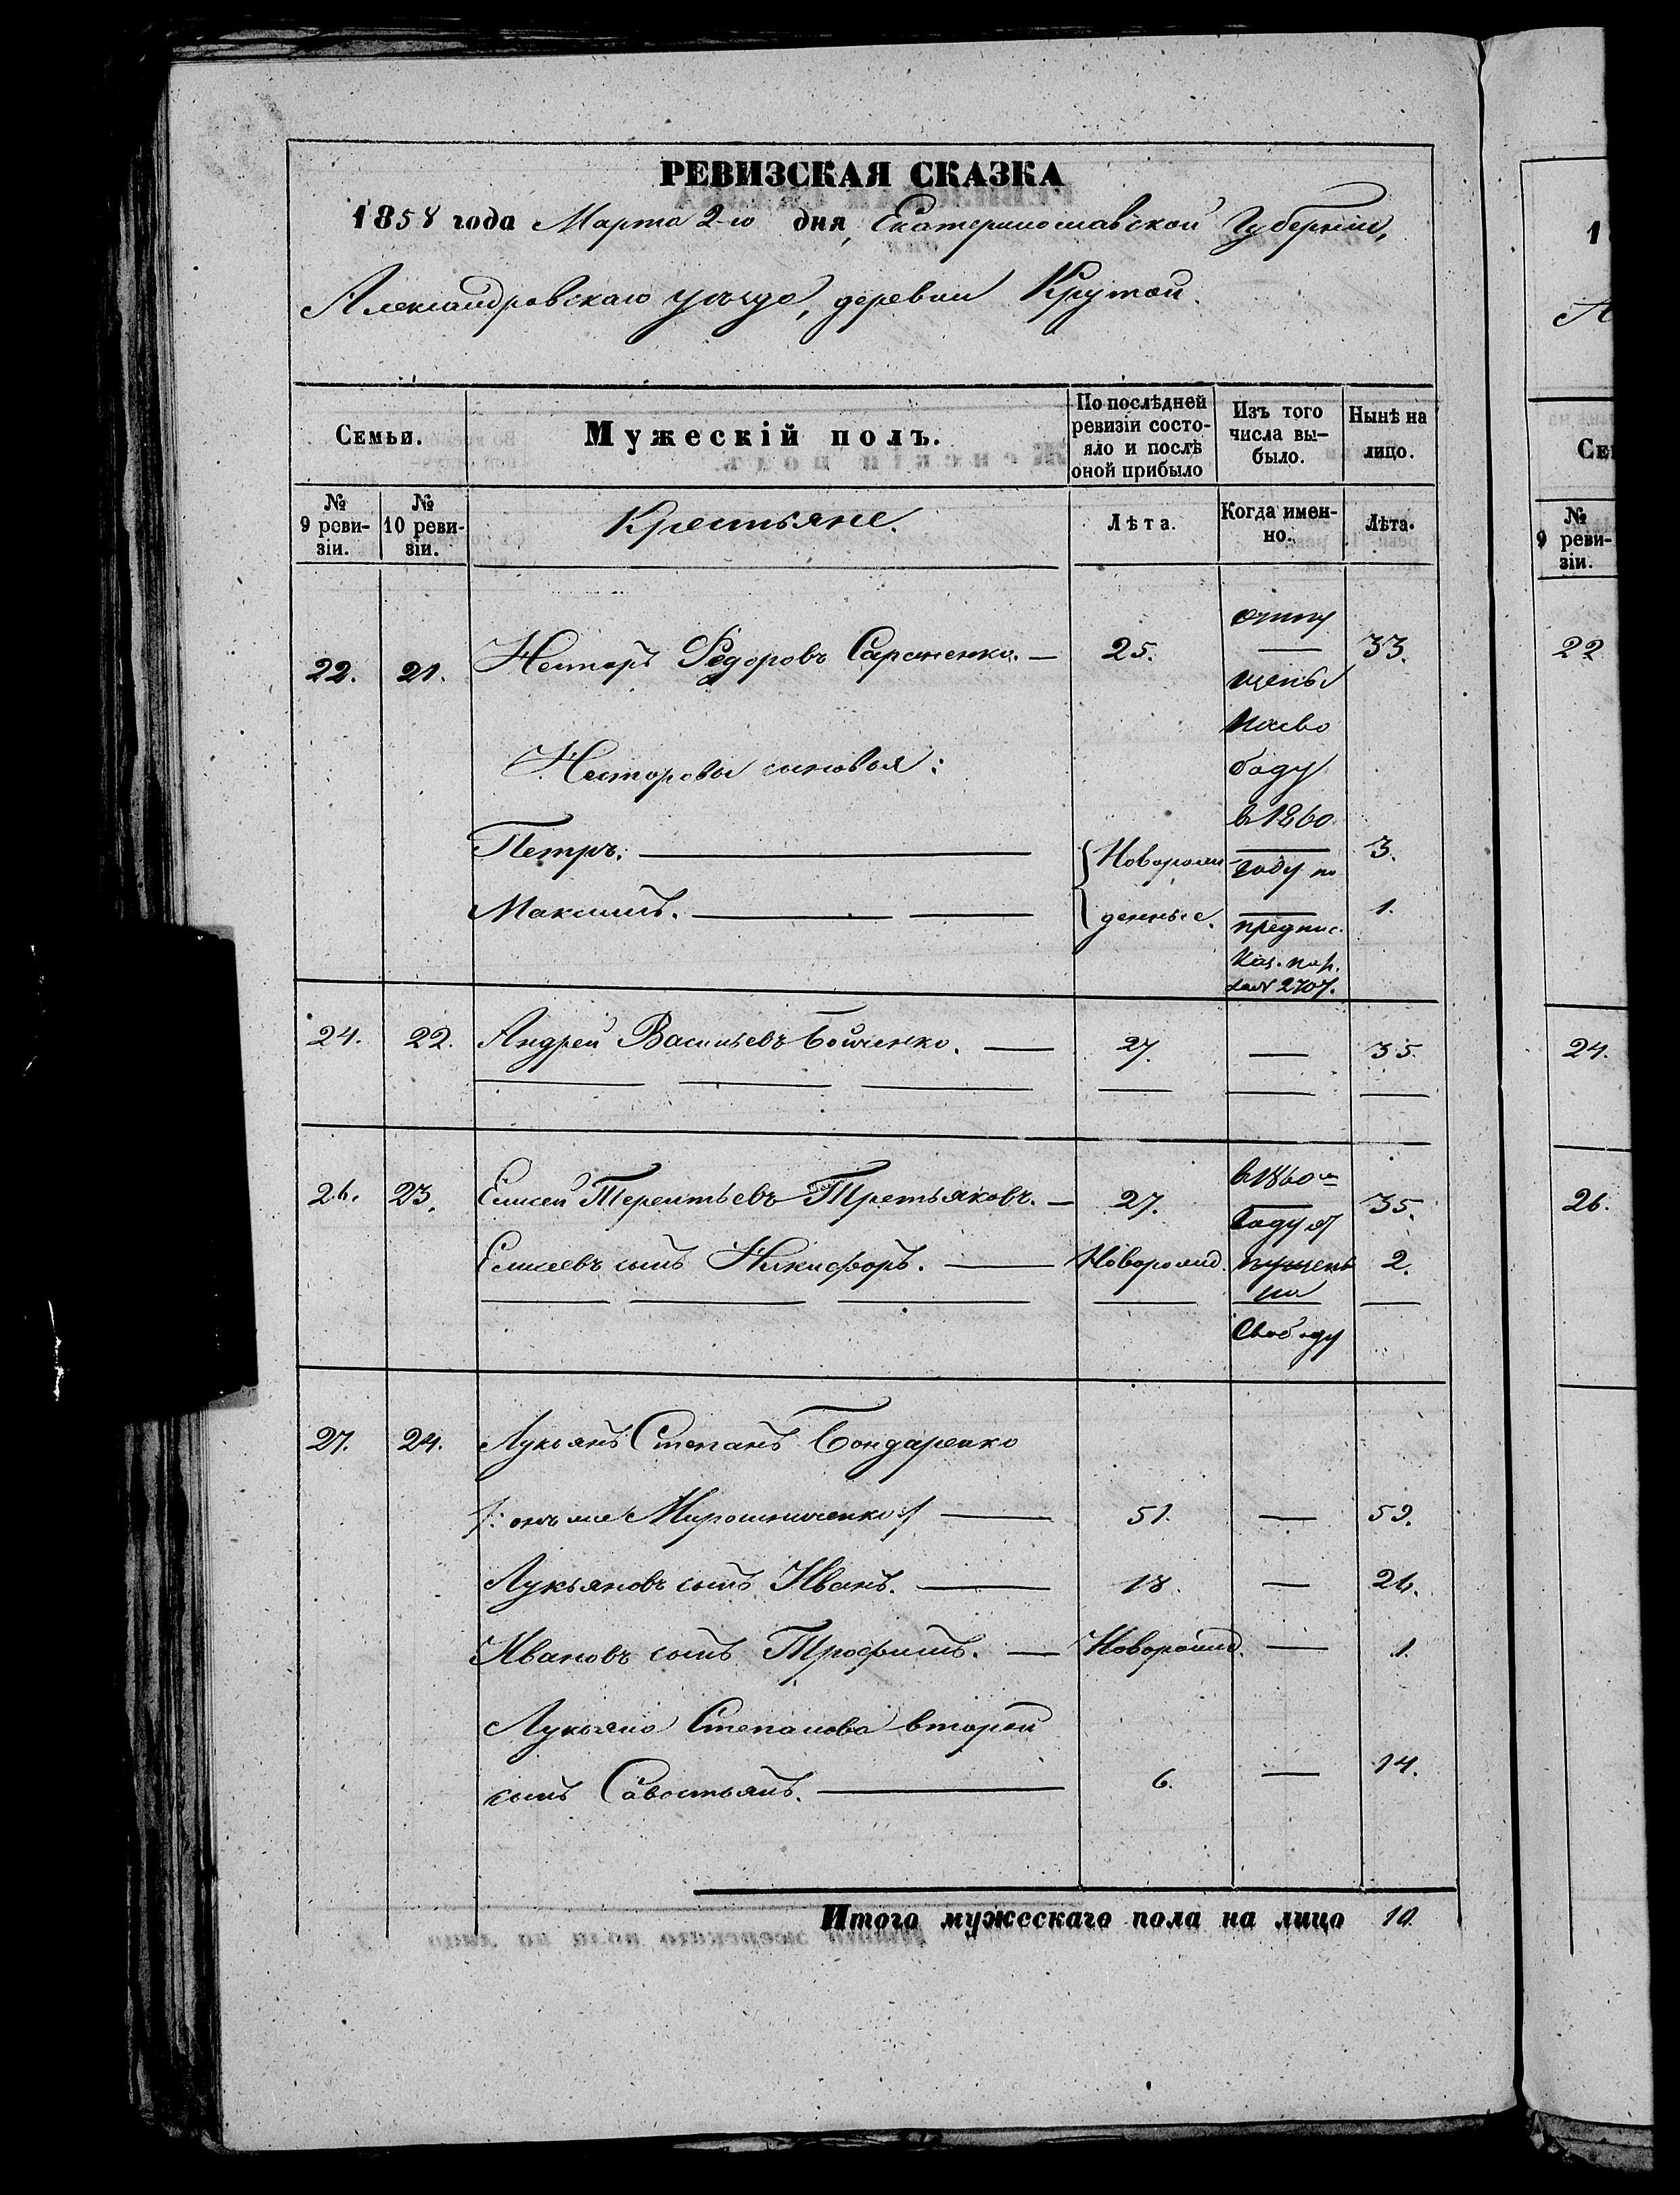 РЕВИЗСКАЯ СКАЗКА
1858 года Марта 2-го дня, Екатеринославской Губерніи,
Александровскаго уѣзда, деревни Крутой.
Семьи.
Мужескій полъ.
По послѣдней ревизіи состояло и послѣ оной прибыло
Изъ того числа выбыло.
Нынѣ на лицо.
№ 9 ревизіи.
№ 10 ревизіи.
Крестьяне.
Лѣта.
Когда именно.
Лѣта.
22. 21. Несторъ Федоровъ — 25. 33.
отпу
щены
насво
боду
в 1860
году по
предпис.
Каз. пал.
за № 2707.
Несторовы сыновья:
Петръ. — Новорож 3.
Максимъ. — денные. 1.
24. 22. Андрей Васильевъ Бойченко. — 27. — 35.
26. 23. Елисей Терентьевъ Третьяковъ. — 27. 35.
Елисеевъ сынъ Никифоръ. — Новорожд. 2.
в 1860 м
году от
пущены
на
свободу
27. 24. Лукьянъ Степанъ Бондаренко
/: онъ же Мирошниченко :/ — 51. — 59.
Лукьяновъ сынъ Иванъ. — 18. — 26.
Ивановъ сынъ Трофимъ. — Новорожд. — 1.
Лукьяна Степанова второй
сынъ Савостьянъ. — 6. — 14.
Итого мужескаго пола на лицо 10.
1
А
Се
№
9 реви-
зіи.
22
24.
26.